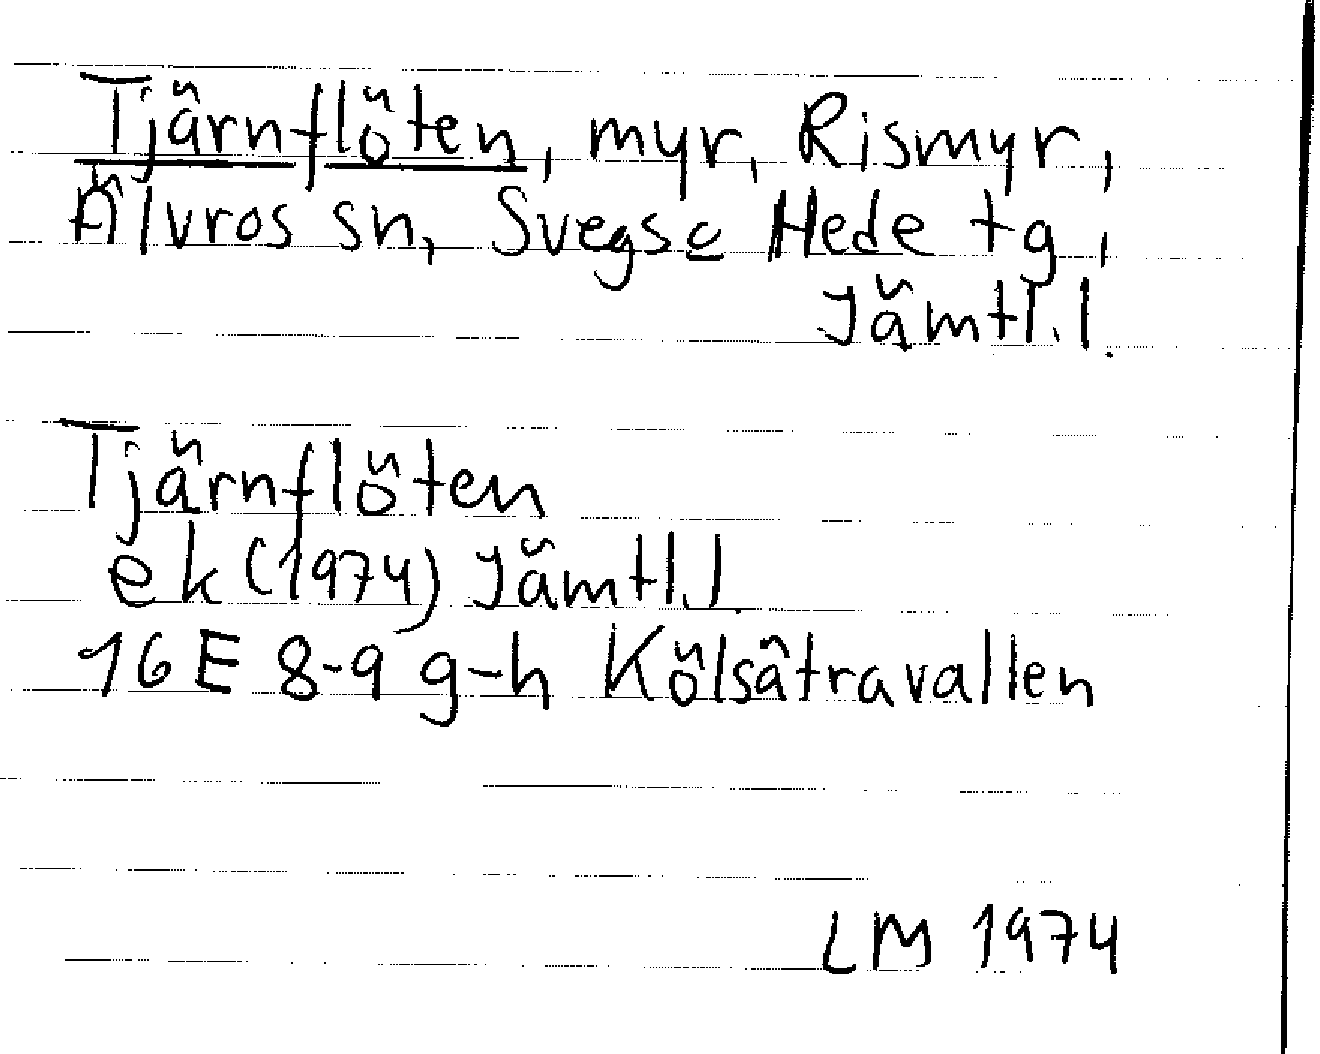 Tjärnflöten, myr, Rismyr,
Älvros sn, Svegs o Hede tg,
Jämtl.l.
Tjärnflöten
ek (1974) Jämtl.l.
16 E 8-9 g-h Kölsätravallen
LM 1974